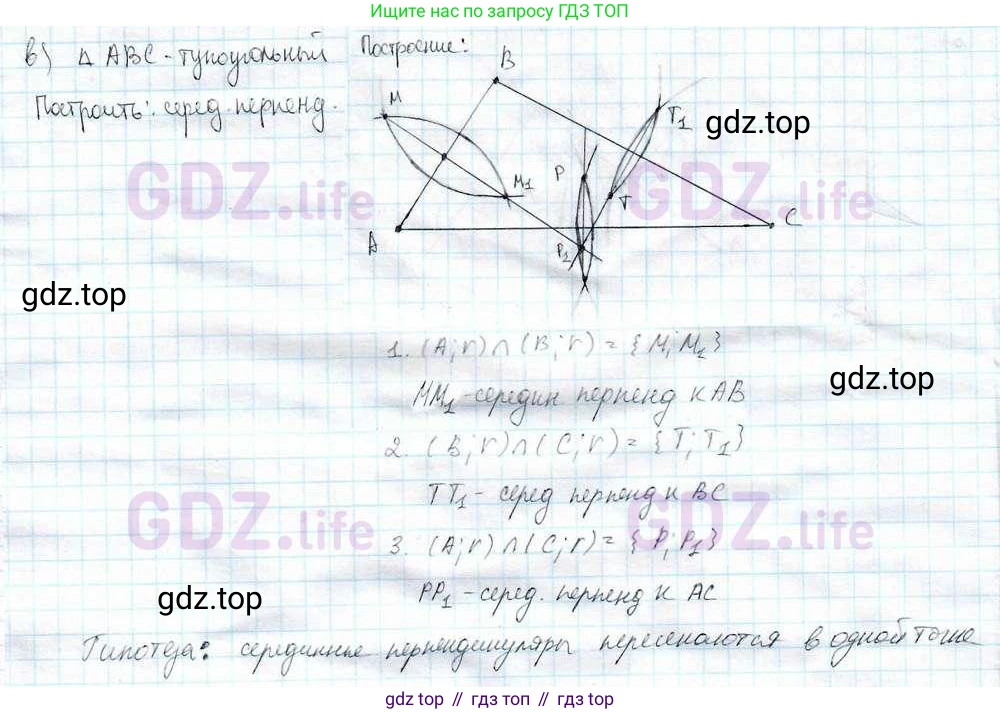 Ищите нас по запросу ГДЗ ТОП
в) Δ ABC - тупоугольный
Построить: серед. перпенд.
Построение:
B
M
T1
gdz.top
P
M1
T
GDZ.life
GDZ.life
A
C
P1
gdz.top
1. (A; r) ∩ (B; r) = {M; M1}
gdz.top
MM1 - середин перпенд к AB
2. (B; r) ∩ (C; r) = {T; T1}
TT1 - серед перпенд к BC
GDZ.life
GDZ.life
3. (A; r) ∩ (C; r) = {P; P1}
PP1 - серед. перпенд к AC
gdz.top
Гипотеза: серединные перпендикуляры пересекаются в одной точке
gdz top // гдз топ // gdz top